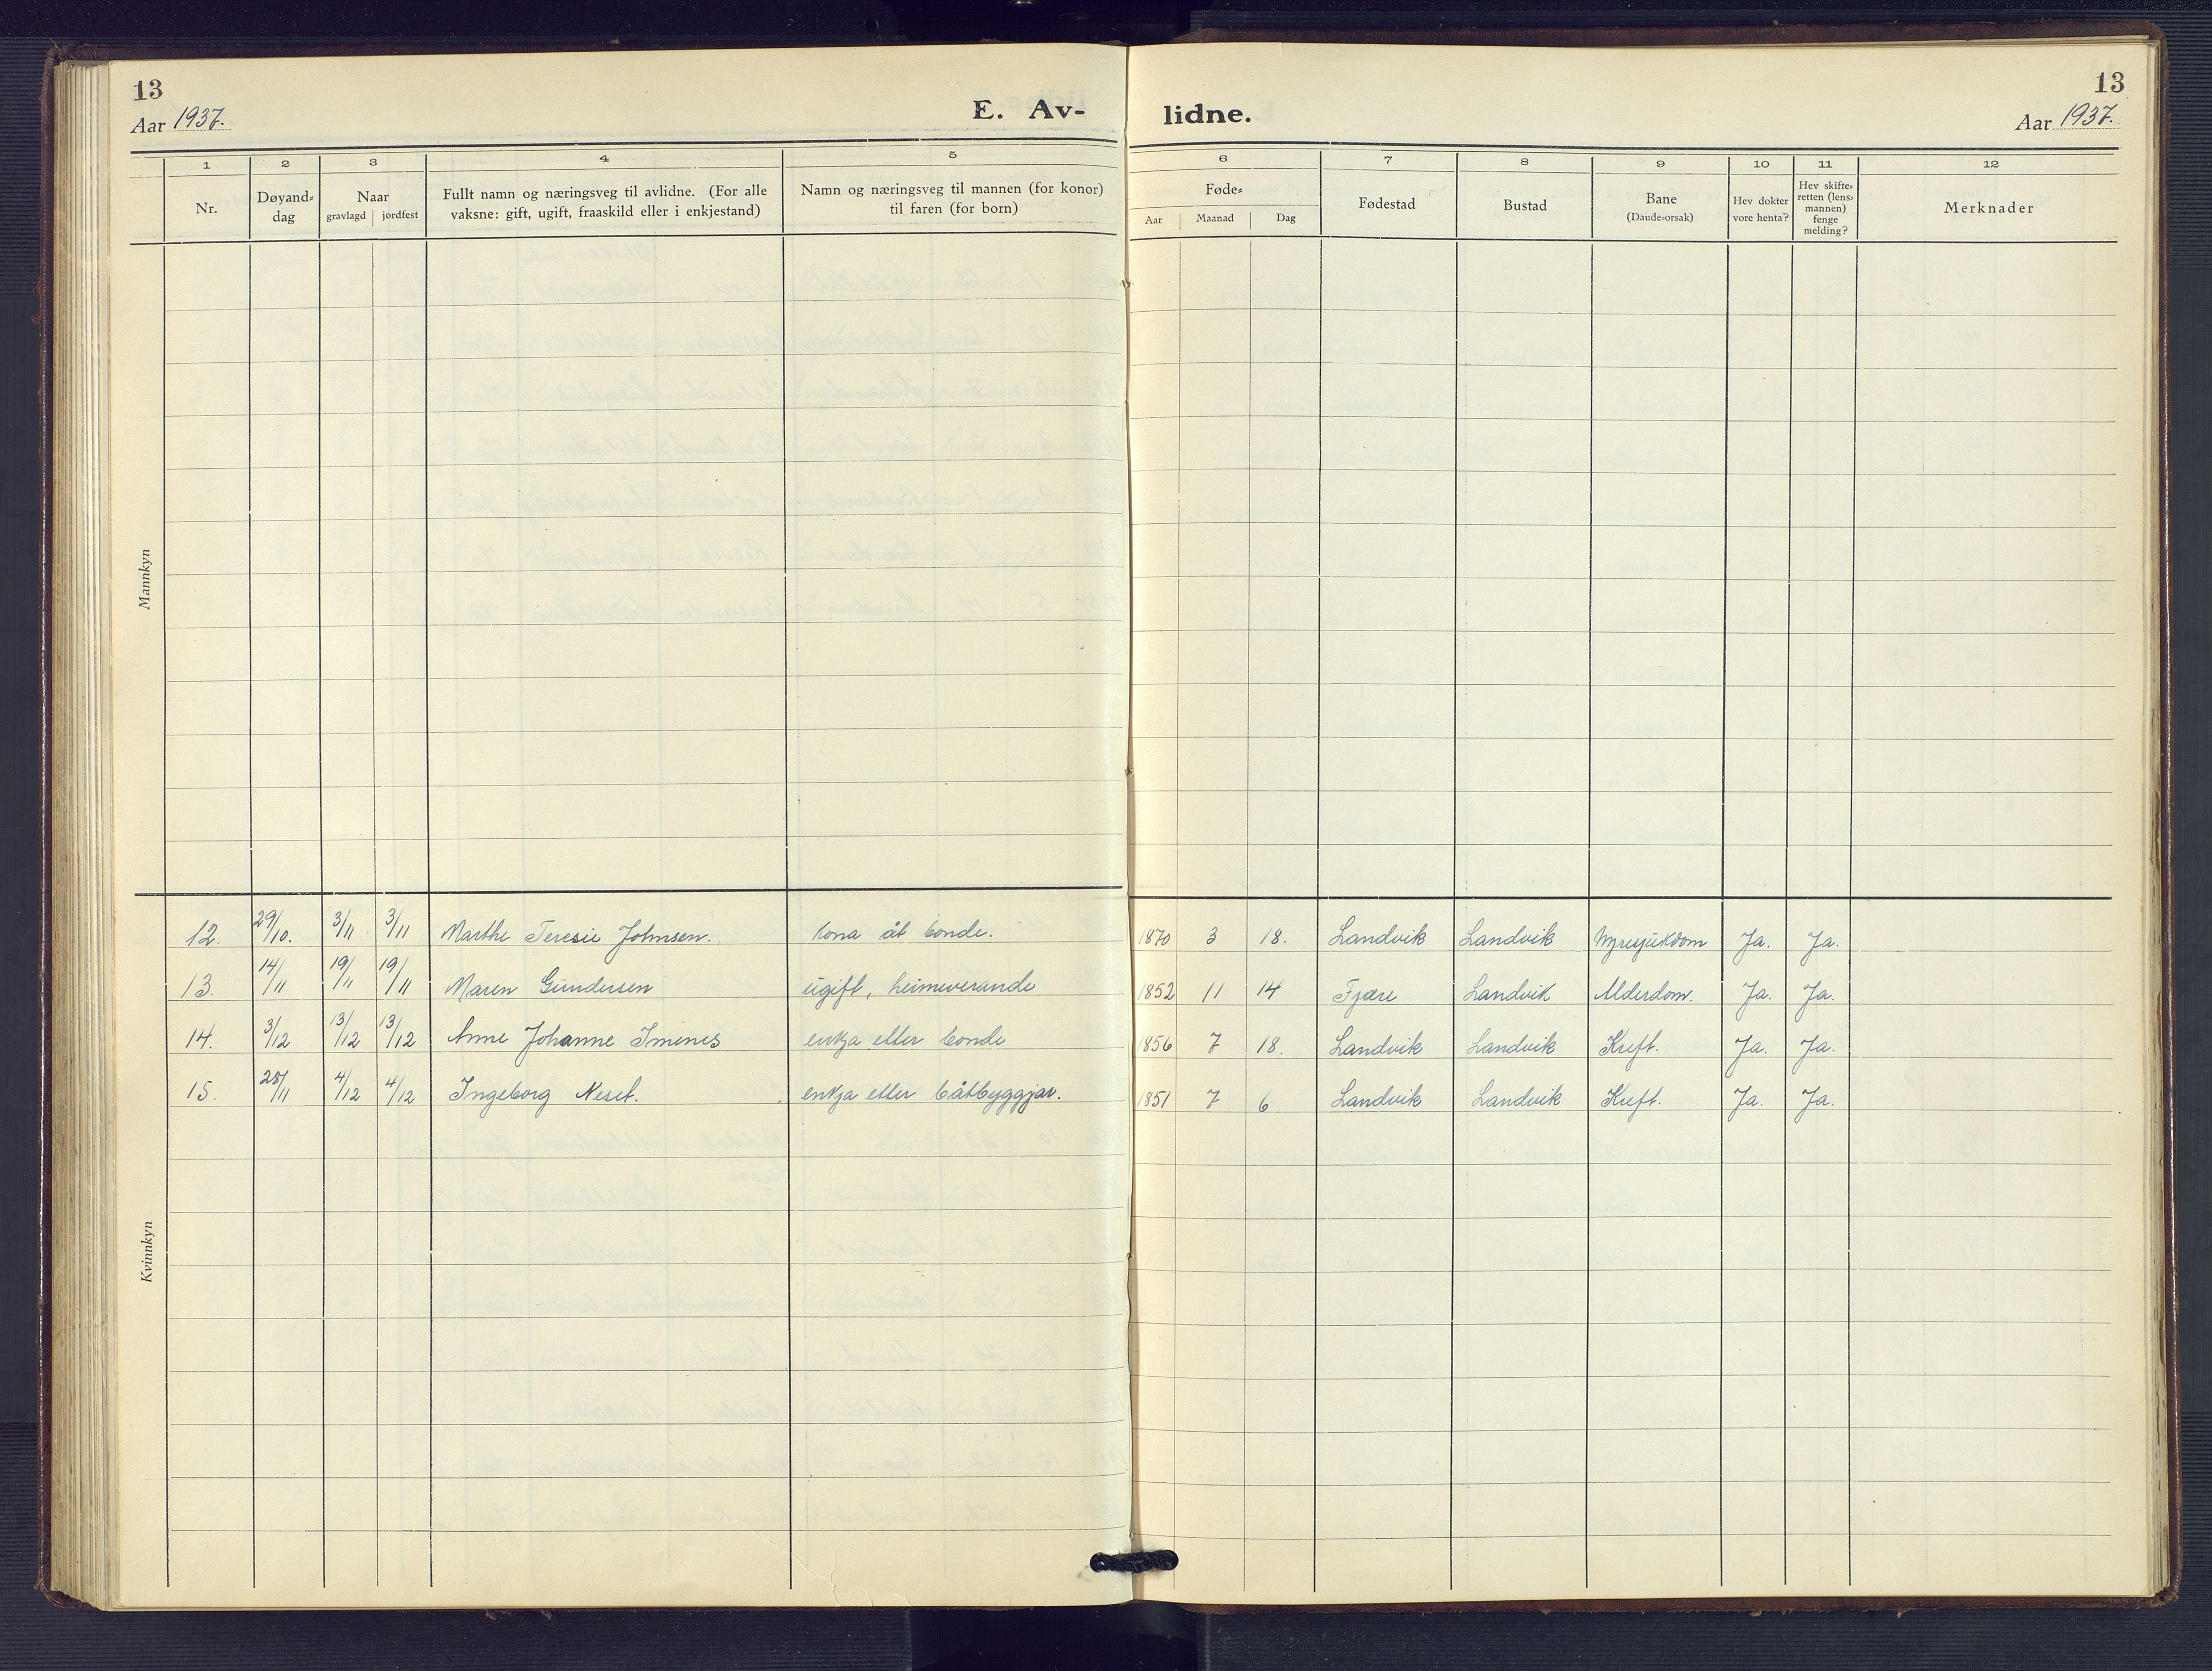 13
Aar 1937.
E. Av-
lidne.
13
Aar 1937.
1 2 3 4 5 6 7 8 9 10 11 12
Nr. Døyand-dag Naar gravlagd jordfest Fullt namn og næringsveg til avlidne. (For alle vaksne: gift, ugift, fraaskild eller i enkjestand) Namn og næringsveg til mannen (for konor) til faren (for born) Føde- Aar Maanad Dag Fødestad Bustad Bane (Daude-orsak) Hev dokter vore henta? Hev skifte-retten (lens-mannen) fenge melding? Merknader
Mannkyn
12. 29/10. 3/11 3/11 Marthe Teresie Johnsen. kona åt bonde. 1870 3 18. Landvik Landvik Nyresjukdom Ja. Ja.
13. 14/11 19/11 19/11 Maren Gundersen ugift, heimeverande 1852 11 14 Fjære Landvik Alderdom. Ja. Ja.
14. 3/12 13/12 13/12 Anne Johanne Imenes enkja etter bonde 1856 7 18. Landvik Landvik Kreft. Ja. Ja.
15. 28/11 4/12 4/12 Ingeborg Neset. enkja etter båtbyggjar. 1851 7 6 Landvik Landvik Kreft. Ja. Ja.
Kvinnkyn